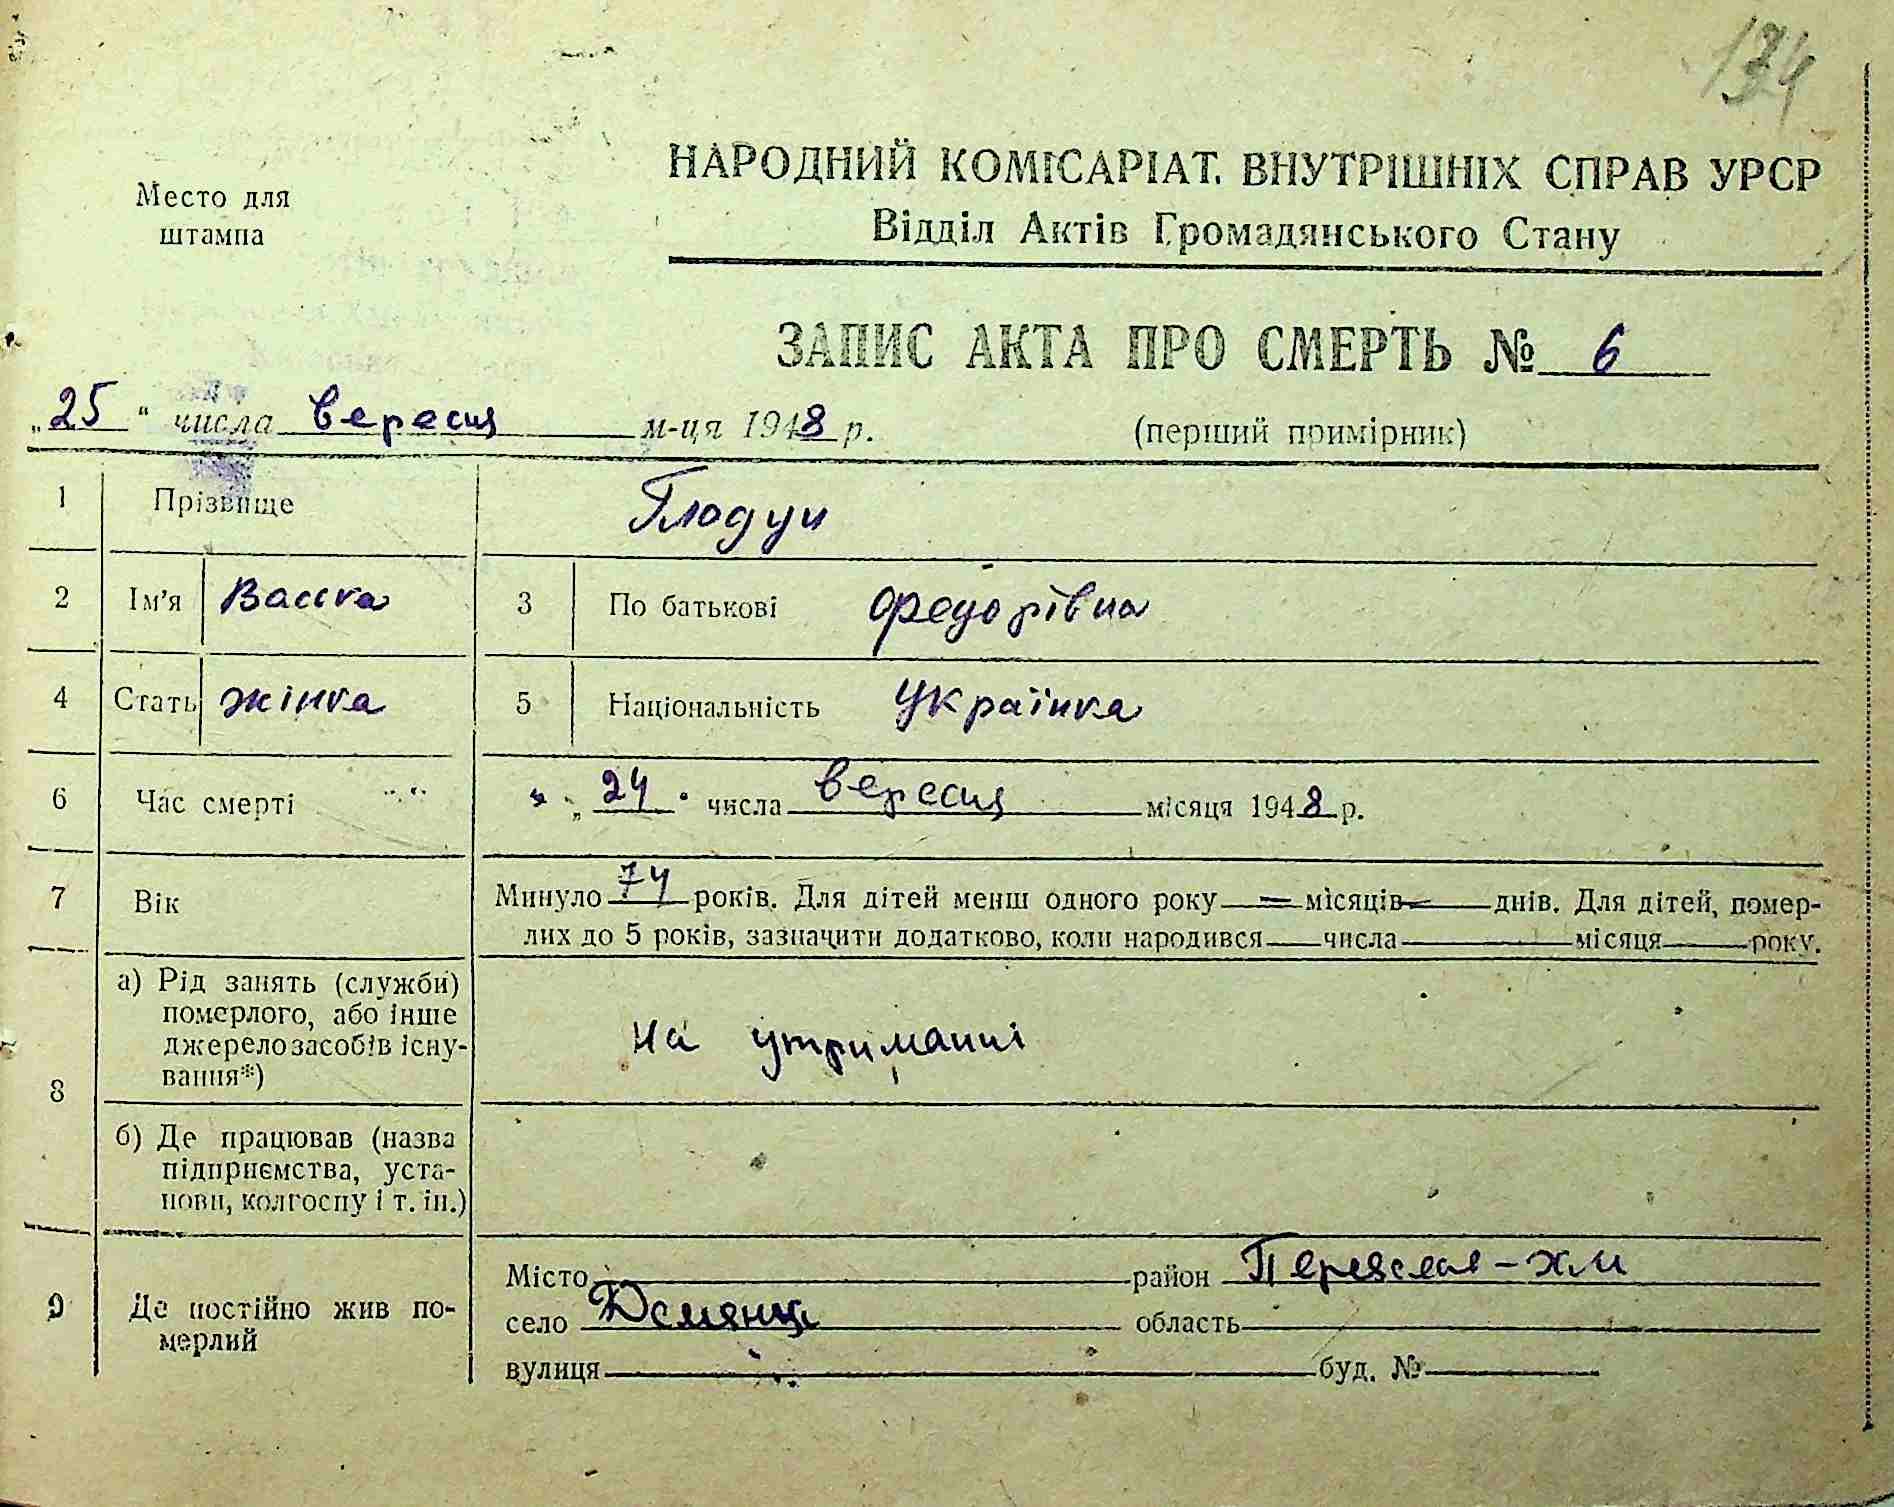 134
Место для
штампа
НАРОДНИЙ КОМІСАРІАТ. ВНУТРІШНІХ СПРАВ УРСР
Відділ Актів Громадянського Стану
ЗАПИС АКТА ПРО СМЕРТЬ № 6
„25" числа вересня м-ця 1948 р. (перший примірник)
1 Прізвище
2 Ім'я Васса 3 По батькові Федорівна
4 Стать жінка 5 Національність Українка
6 Час смерті „24" числа вересня місяця 1948 р.
7 Вік Минуло 74 років. Для дітей менш одного року — місяців — днів. Для дітей, помер-
лих до 5 років, зазначити додатково, коли народився числа місяця року.
8 а) Рід занять (служби)
померлого, або інше
джерело засобів існу-
вання*)
На утриманні
б) Де працював (назва
підприємства, уста-
нови, колгоспу і т. ін.)
9 Де постійно жив по-
мерлий
Місто район Переяслав-Хм
село Демянці область
вулиця буд. №